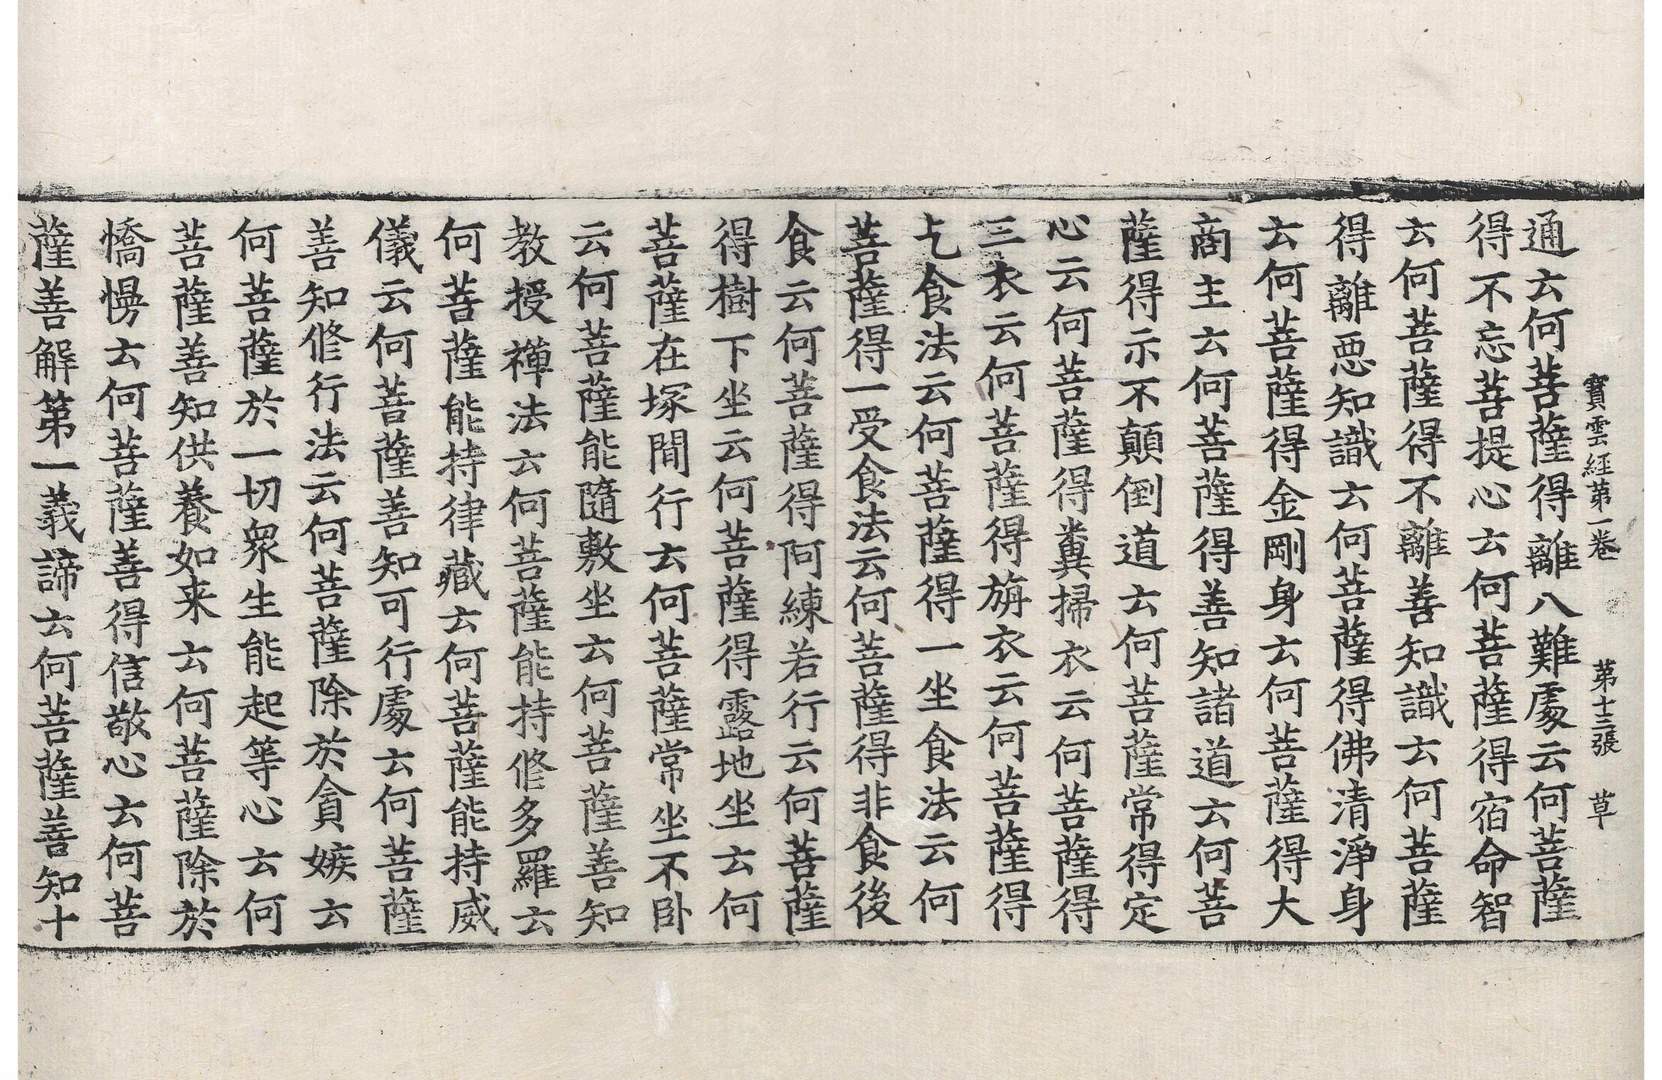 寳雲經第一卷　第十三張　草
通云何菩薩得離八難處云何菩薩
得不忘菩提心云何菩薩得宿命智
云何菩薩得不離善知識云何菩薩
得離惡知識云何菩薩得佛清淨身
云何菩薩得金剛身云何菩薩得大
商主云何菩薩得善知諸道云何菩
薩得示不顛倒道云何菩薩常得定
心云何菩薩得糞掃衣云何菩薩得
三衣云何菩薩得旃衣云何菩薩得
乞食法云何菩薩得一坐食法云何
菩薩得一受食法云何菩薩得非食後
食云何菩薩得阿練若行云何菩薩
得樹下坐云何菩薩得露地坐云何
菩薩在塚間行云何菩薩常坐不卧
云何菩薩能隨敷坐云何菩薩善知
教授禪法云何菩薩能持修多羅云
何菩薩能持律藏云何菩薩能持威
儀云何菩薩善知可行處云何菩薩
善知修行法云何菩薩除於貪嫉云
何菩薩於一切衆生能起等心云何
菩薩善知供養如来云何菩薩除於
憍慢云何菩薩善得信敬心云何菩
薩善解第一義諦云何菩薩善知十